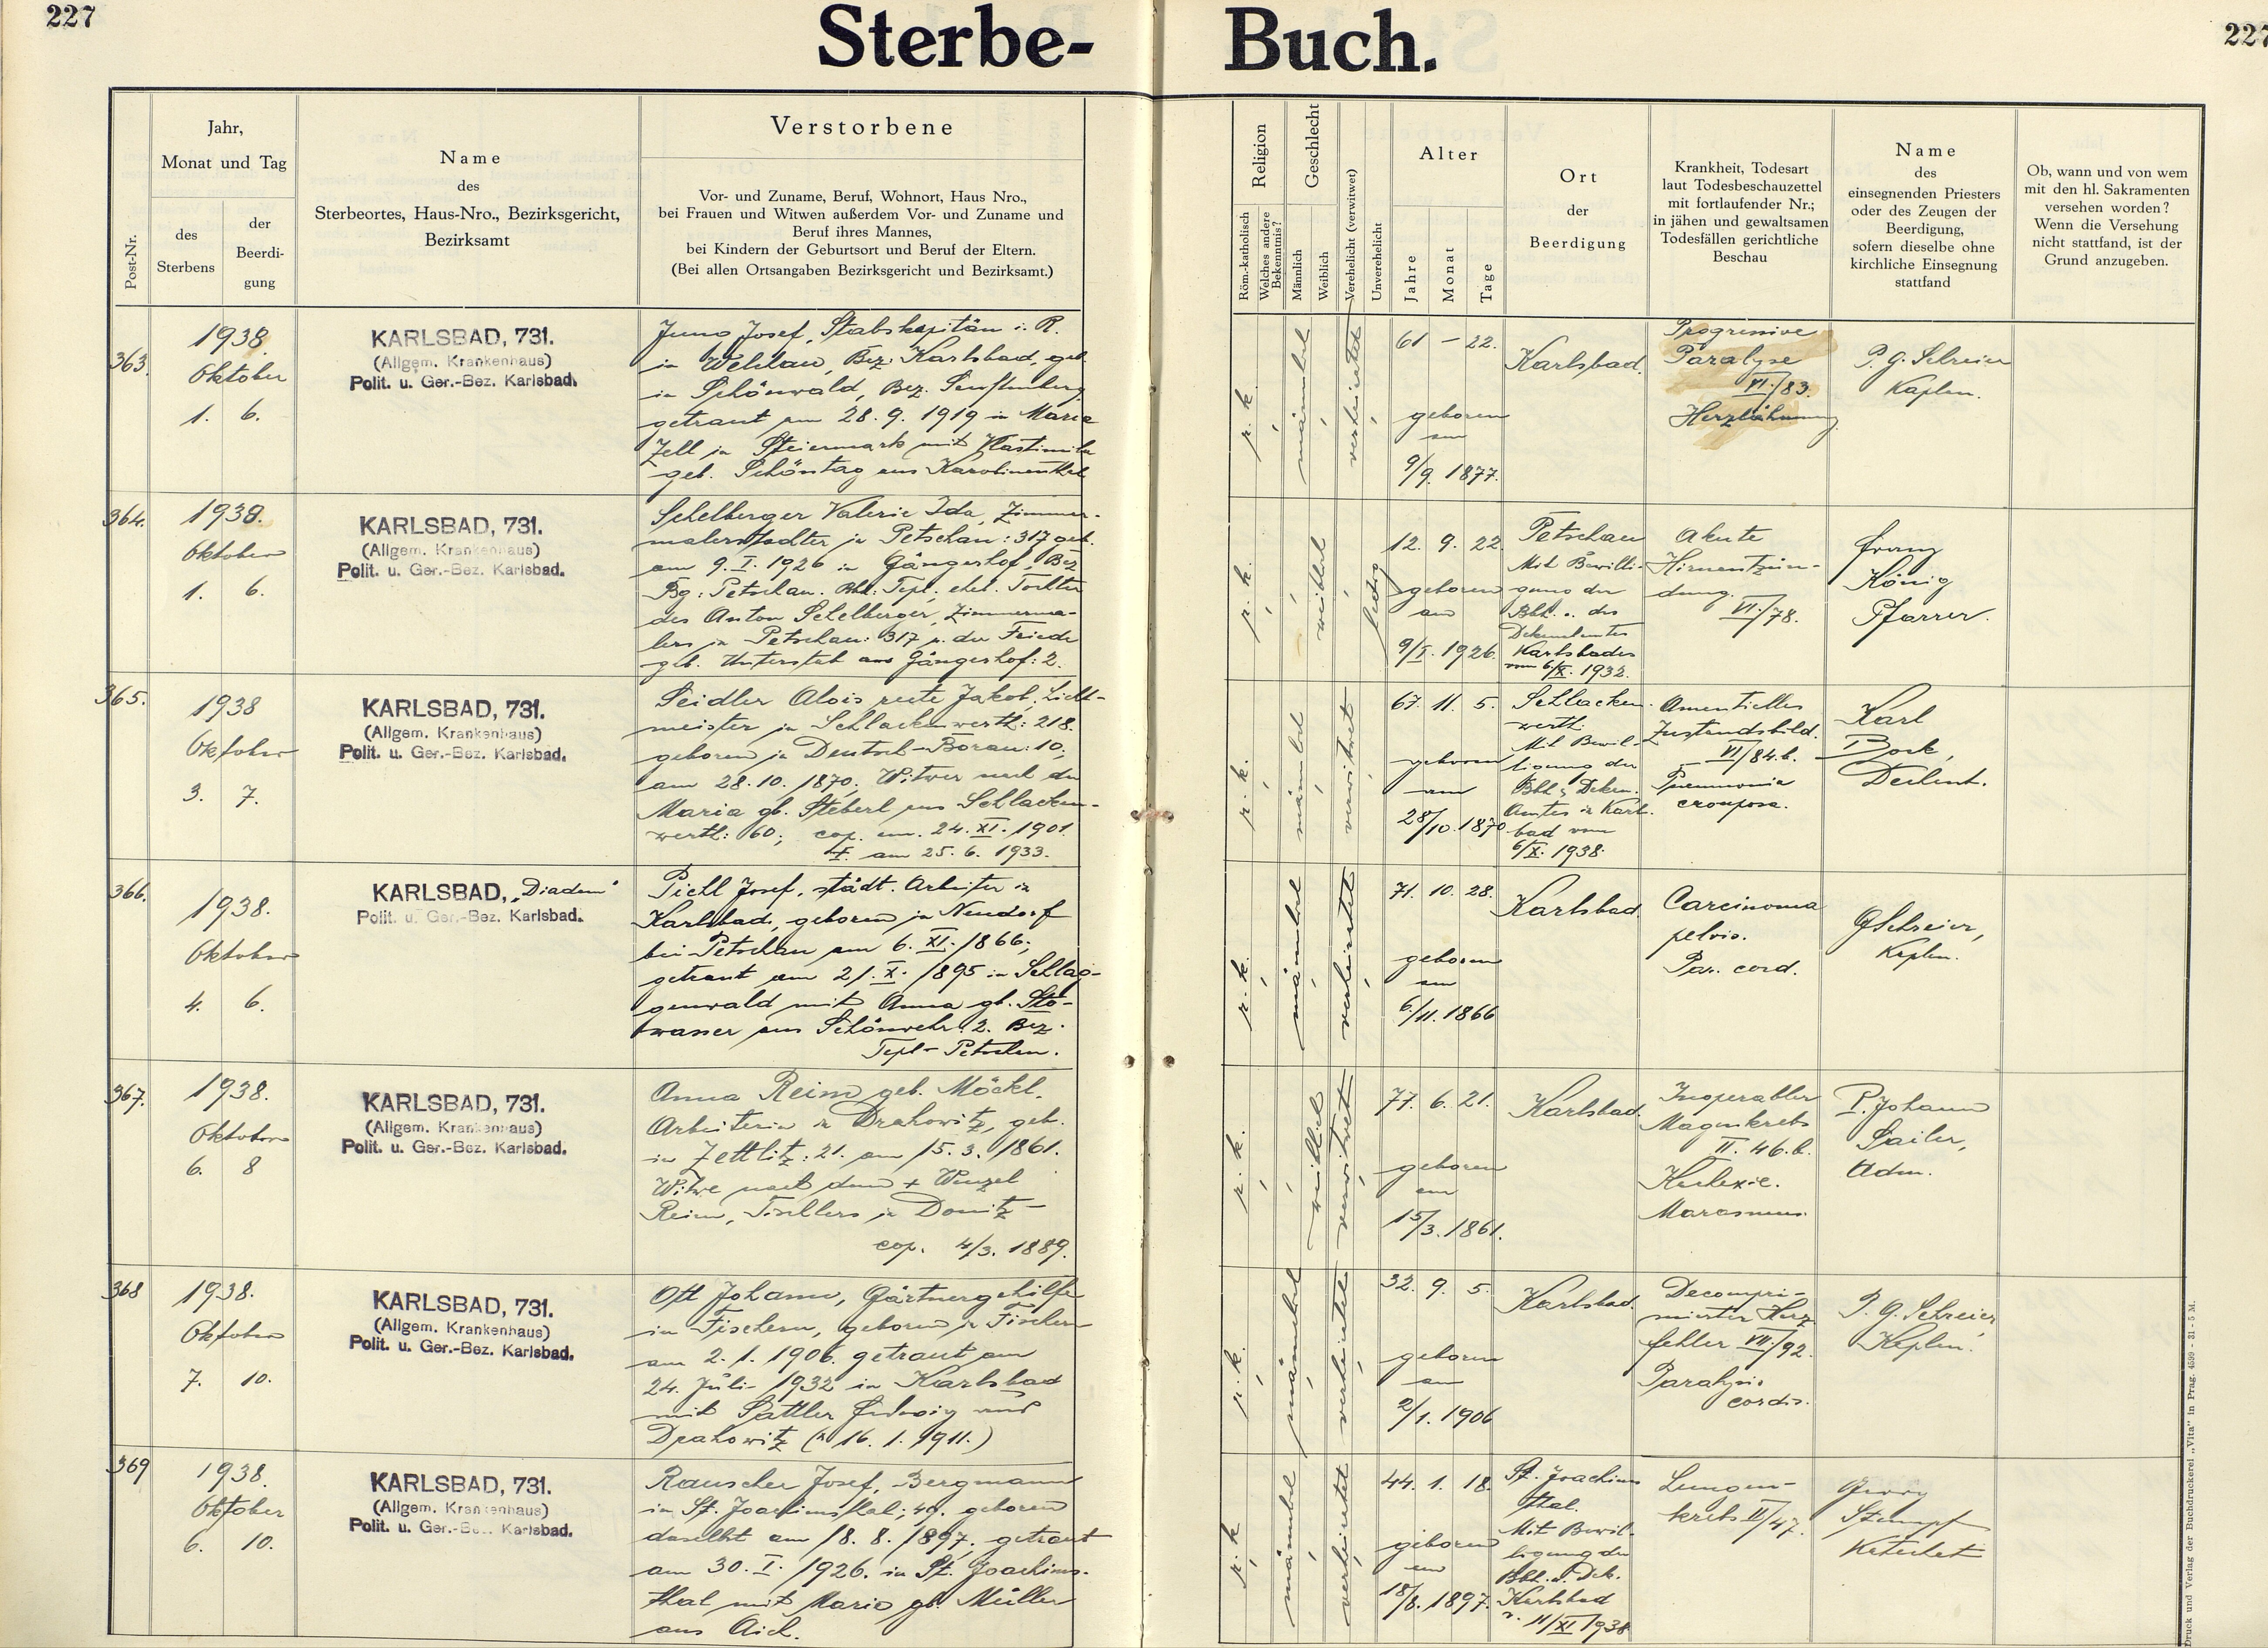 227
Sterbe-
Buch.
227
Post-Nr.
Jahr,
Monat und Tag
des
Sterbens
der
Beerdi-
gung
Name
des
Sterbeortes, Haus-Nro., Bezirksgericht,
Bezirksamt
Verstorbene
Vor- und Zuname, Beruf, Wohnort, Haus Nro.,
bei Frauen und Witwen außerdem Vor- und Zuname und
Beruf ihres Mannes,
bei Kindern der Geburtsort und Beruf der Eltern.
(Bei allen Ortsangaben Bezirksgericht und Bezirksamt.)
Religion
Röm.-katholisch
Welches andere
Bekenntnis?
Geschlecht
Männlich
Weiblich
Verehelicht (verwitwet)
Unverehelicht
Alter
Jahre
Monat
Tage
Ort
der
Beerdigung
Krankheit, Todesart
laut Todesbeschauzettel
mit fortlaufender Nr.;
in jähen und gewaltsamen
Todesfällen gerichtliche
Beschau
Name
des
einsegnenden Priesters
oder des Zeugen der
Beerdigung,
sofern dieselbe ohne
kirchliche Einsegnung
stattfand
Ob, wann und von wem
mit den hl. Sakramenten
versehen worden?
Wenn die Versehung
nicht stattfand, ist der
Grund anzugeben.
363.
1938.
Oktober
1. 6.
KARLSBAD, 731.
(Allgem. Krankenhaus)
Polit. u. Ger.-Bez. Karlsbad.
Josef, Stabskapitän i. R.
in Bez. Karlsbad, geb.
in Schönwald, Bez. Senftenberg
getraut am 28. 9. 1919 in Maria
Zell in Steiermark mit Vlastimila
geb. Schöntag aus Karolinenthal
r. k.
männlich
verheiratet
61 – 22.
geboren
am
9/9. 1877.
Karlsbad.
Progressive
Paralyse
VI./83.
Herzlähmung
P. G. Schreier
Kaplan.
364.
1938.
Oktober
1. 6.
KARLSBAD, 731.
(Allgem. Krankenhaus)
Polit. u. Ger.-Bez. Karlsbad.
Schelberger Valerie Ida, Zimmer-
malerstochter in Petschau: 317 geb.
am 9. I. 1926 in Gängerhof, Bez
Bg: Petschau. Bhl: Tepl, ehel. Tochter
des Anton Schelberger, Zimmerma-
lers in Petschau: 317 u. der Frieda
geb. aus Gängerhof: 2.
r. k.
weiblich
ledig
12. 9. 22.
geboren
am
9/I. 1926.
Petschau
Mit Bewilli-
gung der
Bhl. u. des
Dekanalamtes
Karlsbad
vom 6/X. 1932.
Akute
Hirnentzün-
dung.
VI./78.
Franz
König
Pfarrer.
365.
1938
Oktober
3. 7.
KARLSBAD, 731.
(Allgem. Krankenhaus)
Polit. u. Ger.-Bez. Karlsbad.
Seidler Alois recte Jakob,
meister in Schlackenwerth: 218.
geboren in Deutsch-Borau: 10;
am 28. 10. 1870. Witwer nach der
Maria gb. Steberl aus Schlacken-
werth: 60; cop. am. 24. XI. 1901.
†. am 25. 6. 1933.
r. k.
männlich
verwitwet
67. 11. 5.
geboren
am
28/10. 1870
Schlacken-
werth.
Mit Bewil-
ligung der
Bhl & Dekan.
Amtes in Karls-
bad vom
6/X. 1938.
Amentielles
Zustandsbild.
VI/84.b.
Pneumonia
crouposa.
Karl
Bock,
Dechant.
366.
1938.
Oktober
4. 6.
KARLSBAD, „Diadem"
Polit. u. Ger.-Bez. Karlsbad.
Pichl Josef, städt. Arbeiter in
Karlsbad, geboren in Neudorf
bei Petschau am 6. XI. 1866;
getraut am 21. X. 1895 in Schlag-
genwald mit Anna gb. Sto-
wasser aus Schönwehr: 2. Bez.
Tepl – Petschau.
r. k.
männlich
verheiratet
71. 10. 28.
geboren
am
6/11. 1866
Karlsbad
Carcinoma
pelvis.
Par. cord.
G Schreier,
Kaplan.
367.
1938.
Oktober
6. 8
KARLSBAD, 731.
(Allgem. Krankenhaus)
Polit. u. Ger.-Bez. Karlsbad.
Anna Reim geb. Möckl,
Arbeiterin in Drahowitz, geb.
in Zettlitz: 21. am 15. 3. 1861.
Witwe nach dem † Wenzel
Reim, Tischlers in Donitz –
cop. 4/3. 1889.
r. k.
weiblich
verwitwet
77. 6. 21.
geboren
am
15/3. 1861.
Karlsbad.
Inoperabler
Magenkrebs
II. 46.b.
Kachexie.
Marasmus.
P. Johann
Sailer,
Adm.
368
1938.
Oktober
7. 10.
KARLSBAD, 731.
(Allgem. Krankenhaus)
Polit. u. Ger.-Bez. Karlsbad.
Ott Johann, Gärtnergehilfe
in Fischern, geboren in Fischern
am 2. 1. 1906. getraut am
24. Juli 1932 in Karlsbad
mit Sattler aus
Drahowitz (* 16. 1. 1911.)
r. k.
männlich
verheiratet
32. 9. 5.
geboren
am
2/1. 1906
Karlsbad.
Decompri-
mierter Herz
fehler VII./92.
Paralysis
cordis.
P. G. Schreier
Kaplan.
369
1938.
Oktober
6. 10.
KARLSBAD, 731.
(Allgem. Krankenhaus)
Polit. u. Ger.-Bez. Karlsbad.
Rauscher Josef, Bergmann
in St. Joachimsthal; 49. geboren
daselbst am 18. 8. 1897, getraut
am 30. I. 1926. in St. Joachims-
thal mit Marie gb. Müller
aus Aich.
r. k.
männlich
verheiratet
44. 1. 18.
geboren
am
18/8. 1897.
St. Joachims
thal.
Mit Bewil-
ligung der
Bhl. u. Dek.
Karlsbad
v. 11/XI 1938
Lungen-
krebs II/47.
Stumpf
Katechet
Druck und Verlag der Buchdruckerei „Vita" in Prag. 4599 - 31 - 5 M.